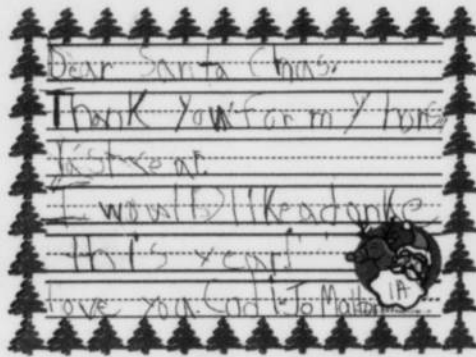 Dear Santa Chas.
Thank you for my hors
last year.
I would like a donke
this year!
love you Codi-Jo
1A